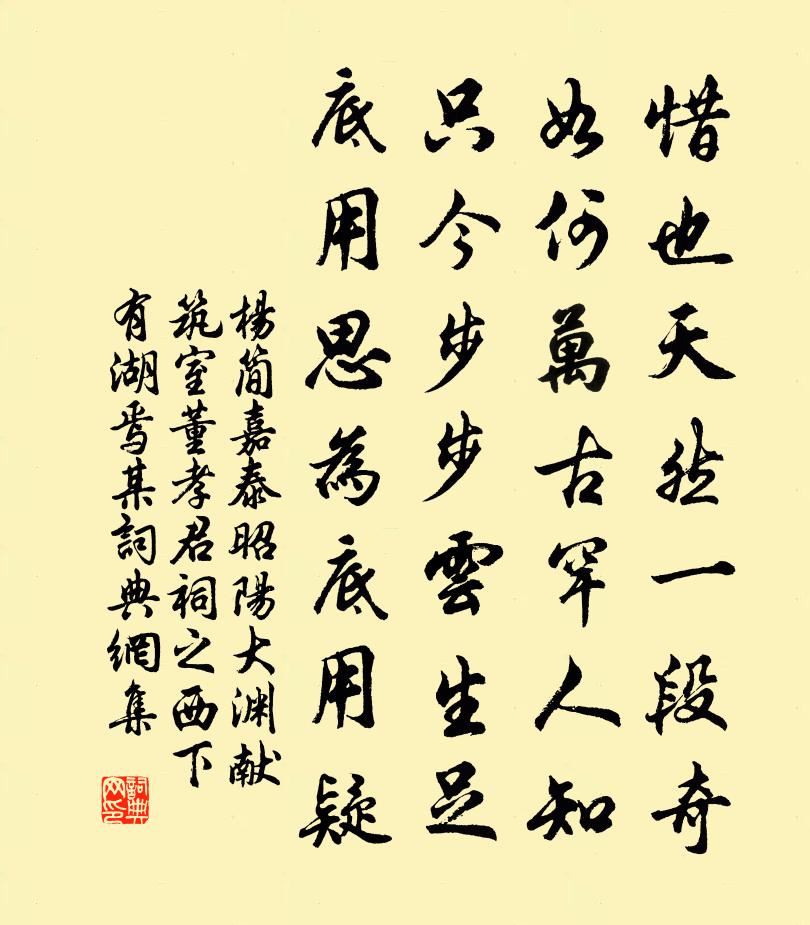 惜也天然一段奇
如何萬古罕人知
只今步步雲生足
底用思為底用疑
楊簡嘉泰昭陽大渊献
筑室董孝君祠之西下
有湖焉某詞典網集
詞典网印